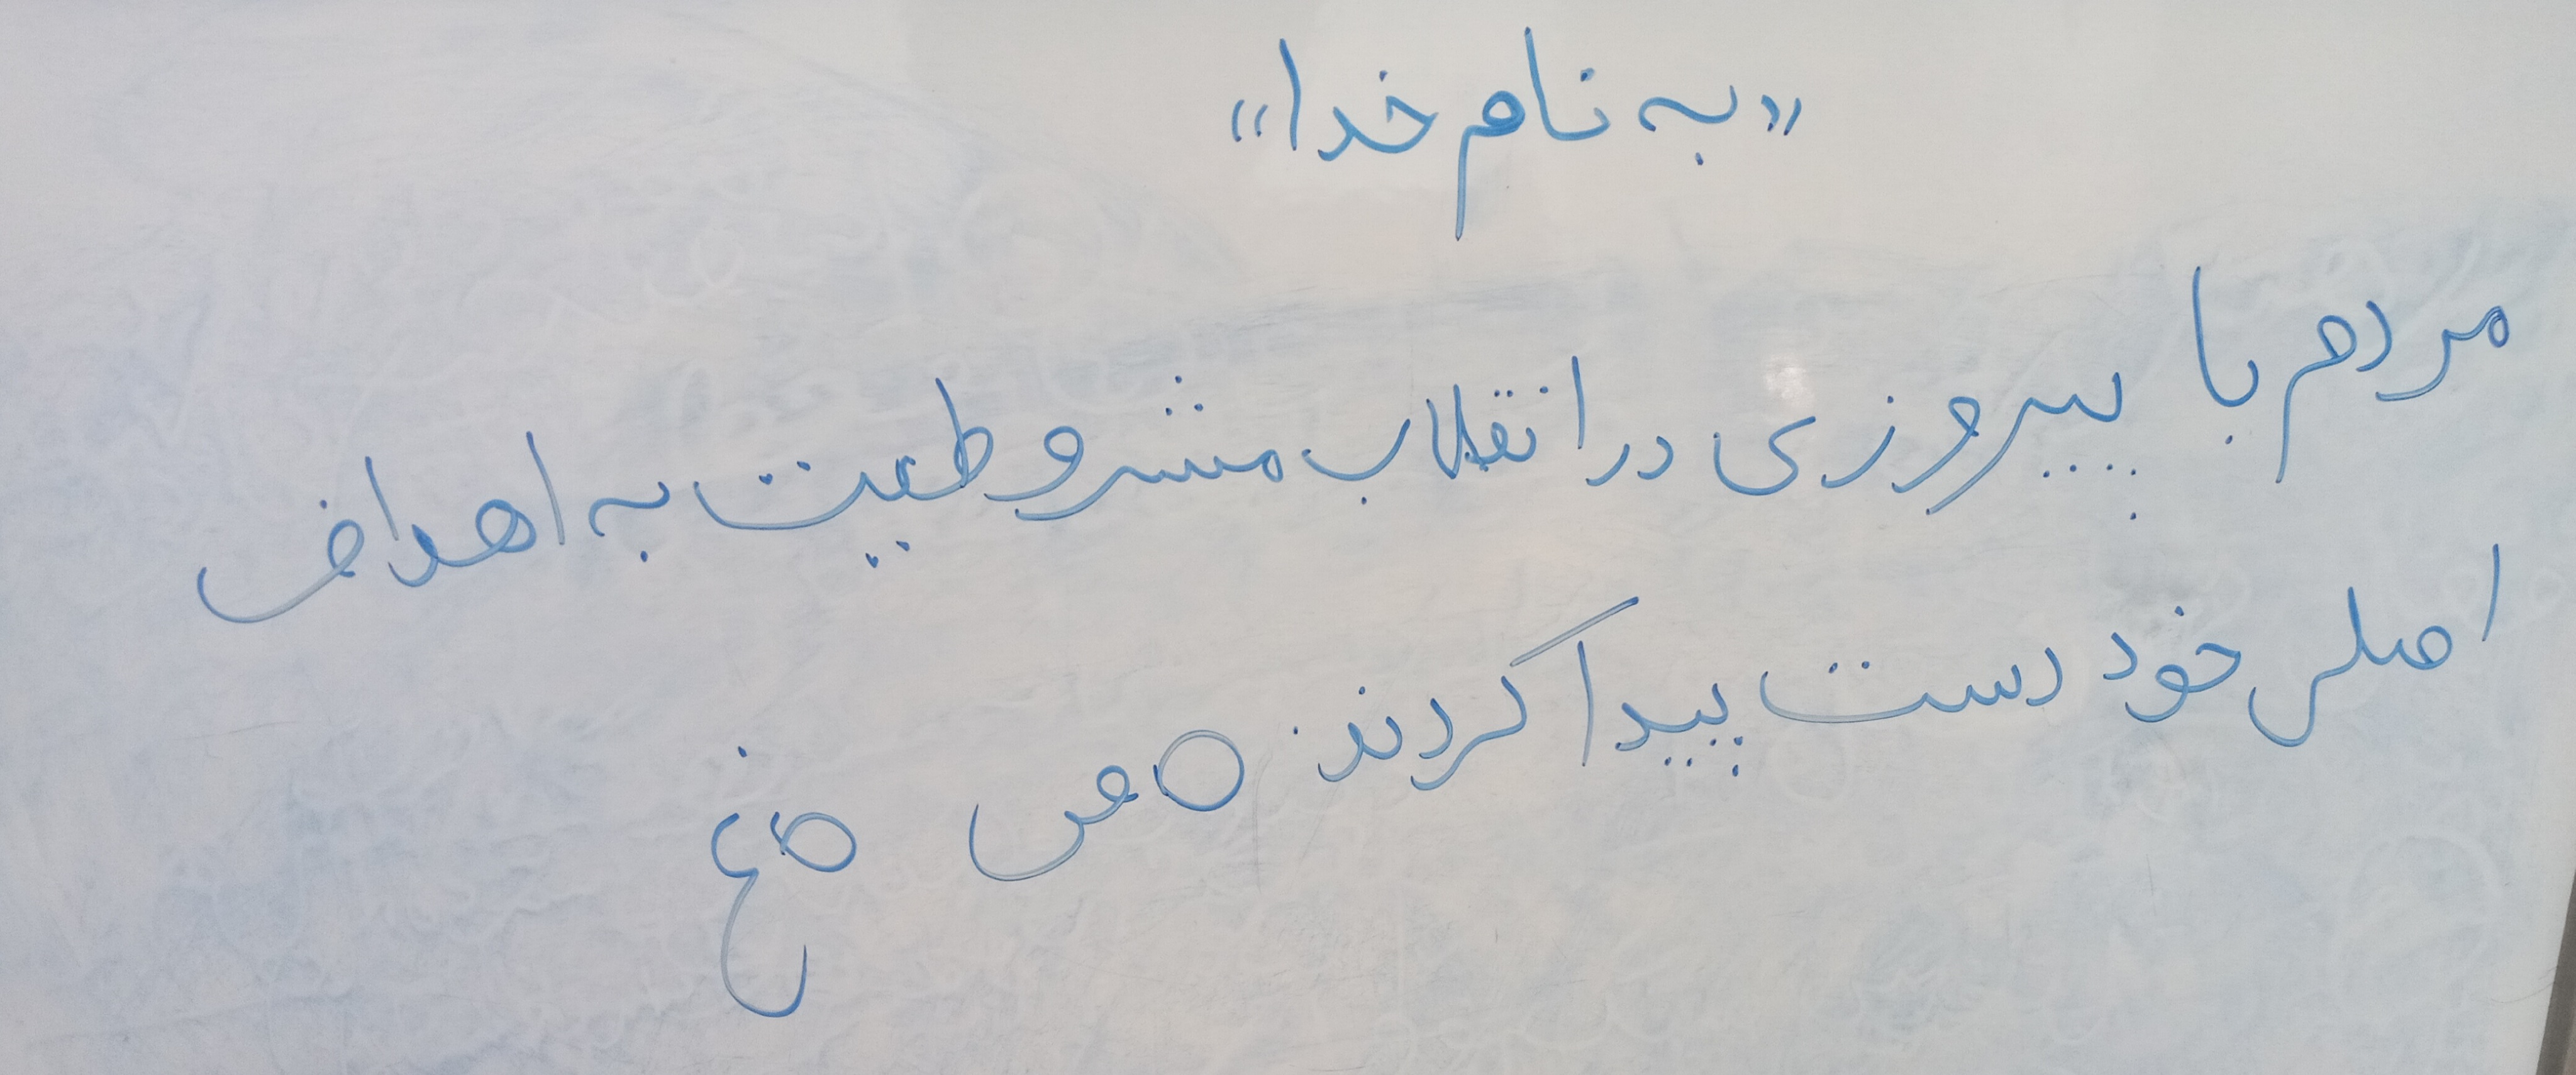 «به نام خدا»
مردم با پیروزی در انقلاب مشروطیت به اهداف
اصلی خود دست پیدا کردند. ص غ